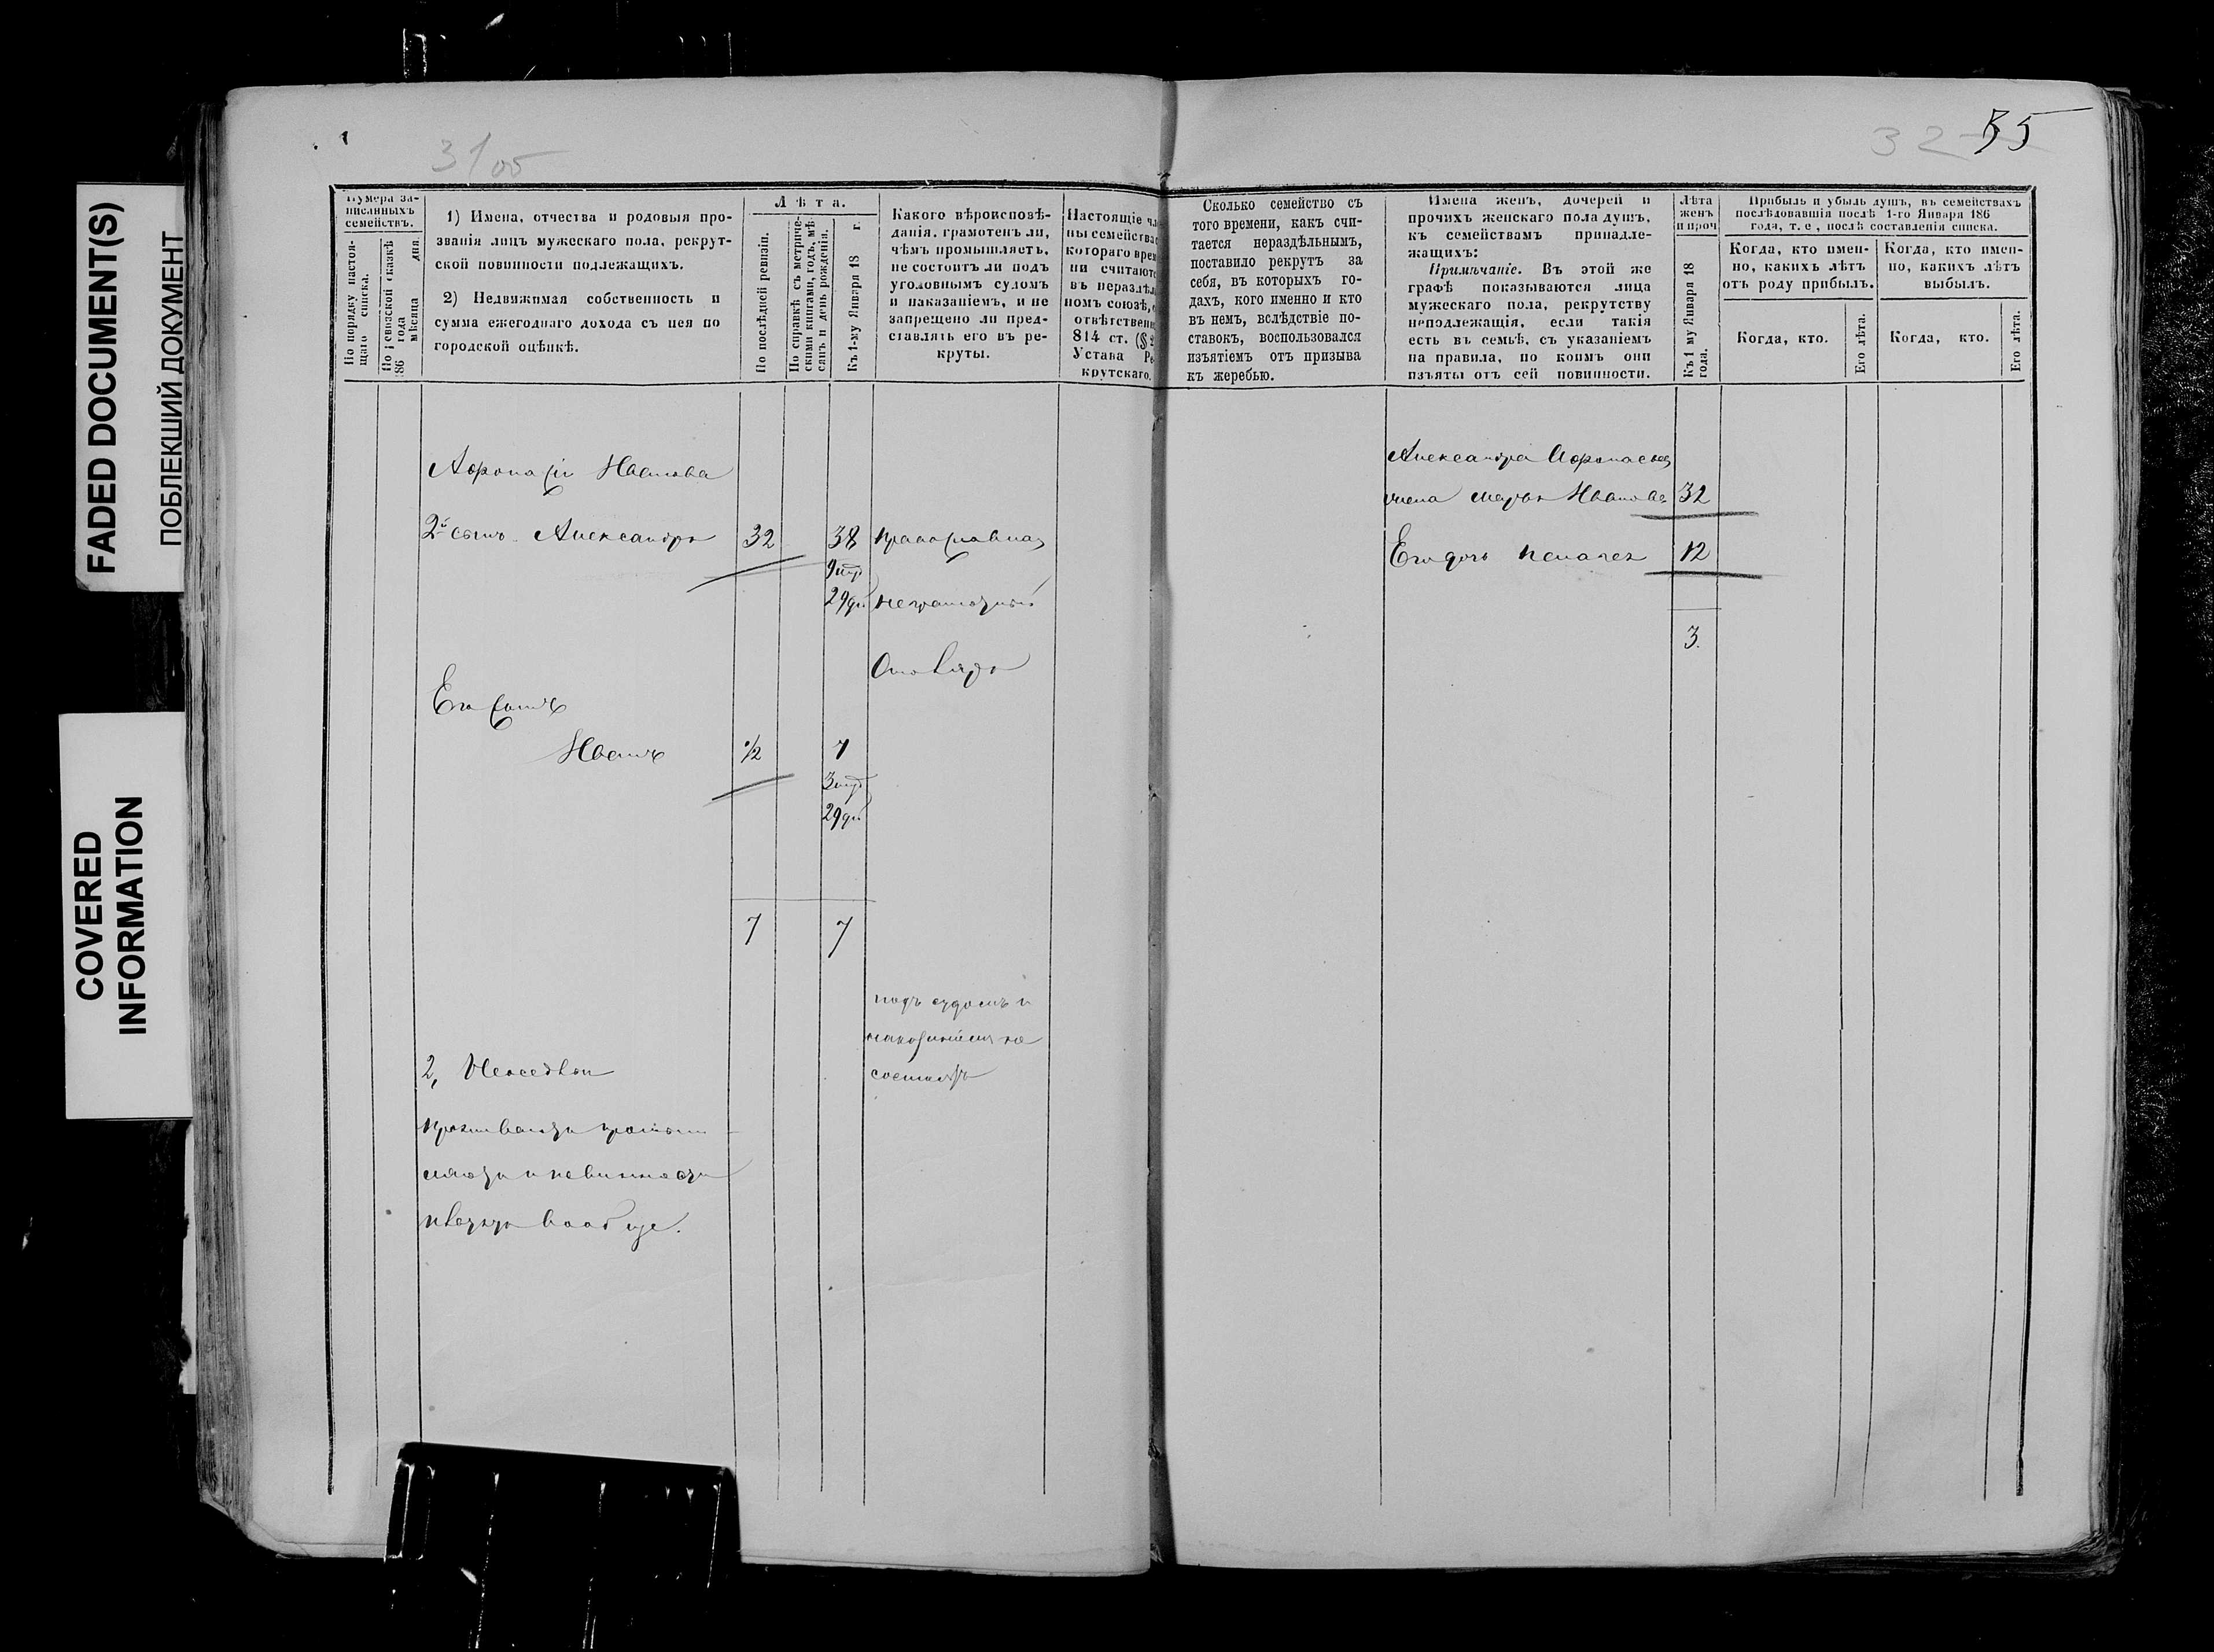 FADED DOCUMENT(S)
ПОБЛЕКШИЙ ДОКУМЕНТ
COVERED
INFORMATION
32 55
Нумера за-
писанныхъ
семействъ.
По порядку настоя-
щаго списка.
По ревизской сказкѣ
186 года
мѣсяца дня.
1) Имена, отчества и родовыя про-
званія лицъ мужескаго пола, рекрут-
ской повинности подлежащихъ.
2) Недвижимая собственность и
сумма ежегоднаго дохода съ нея по
городской оцѣнкѣ.
Лѣта.
По послѣдней ревизіи.
По справкѣ съ метриче-
скими книгами, годъ, мѣ-
сяцъ и день рожденія.
Къ 1-му Января 18 г.
Какого вѣроисповѣ-
данія, грамотенъ ли,
чѣмъ промышляетъ,
не состоитъ ли подъ
уголовнымъ судомъ
и наказаніемъ, и не
запрещено ли пред-
ставлять его въ ре-
круты.
Настоящіе чл
ны семейства
котораго врем
ни считают
въ нераздѣл
номъ союзѣ, с
отвѣтствен
814 ст. (§
Устава Ре
крутскаго.
Сколько семейство съ
того времени, какъ счи-
тается нераздѣльнымъ,
поставило рекрутъ за
себя, въ которыхъ го-
дахъ, кого именно и кто
въ немъ, вслѣдствіе по-
ставокъ, воспользовался
изъятіемъ отъ призыва
къ жеребью.
Имена женъ, дочерей и
прочихъ женскаго пола душъ,
къ семействамъ принадле-
жащихъ:
Примѣчаніе. Въ этой же
графѣ показываются лица
мужескаго пола, рекрутству
неподлежащія, если такія
есть въ семьѣ, съ указаніемъ
на правила, по коимъ они
изъяты отъ сей повинности.
Лѣта
женъ
и проч
Къ 1 му Января 18
года.
Прибыль и убыль душъ, въ семействахъ
послѣдовавшія послѣ 1-го Января 186
года, т. е., послѣ составленія списка.
Когда, кто имен-
но, какихъ лѣтъ
отъ роду прибылъ.
Когда, кто имен-
но, какихъ лѣтъ
выбылъ.
Когда, кто.
Его лѣта.
Когда, кто.
Его лѣта.
Афонасій Иванова
2й сынъ Александръ 32 38 православнаго
9 мѣс
29 дн неграмотный
столяръ
Его сынъ
Иванъ 1/2 7
3 мѣс
29 дн
7 7
подъ судомъ и
наказаніемъ не
состоятъ
2,
повинности
вообще.
Александра Афонасьева
жена Марья Иванова 32
Его дочь Пелагея 12
3.